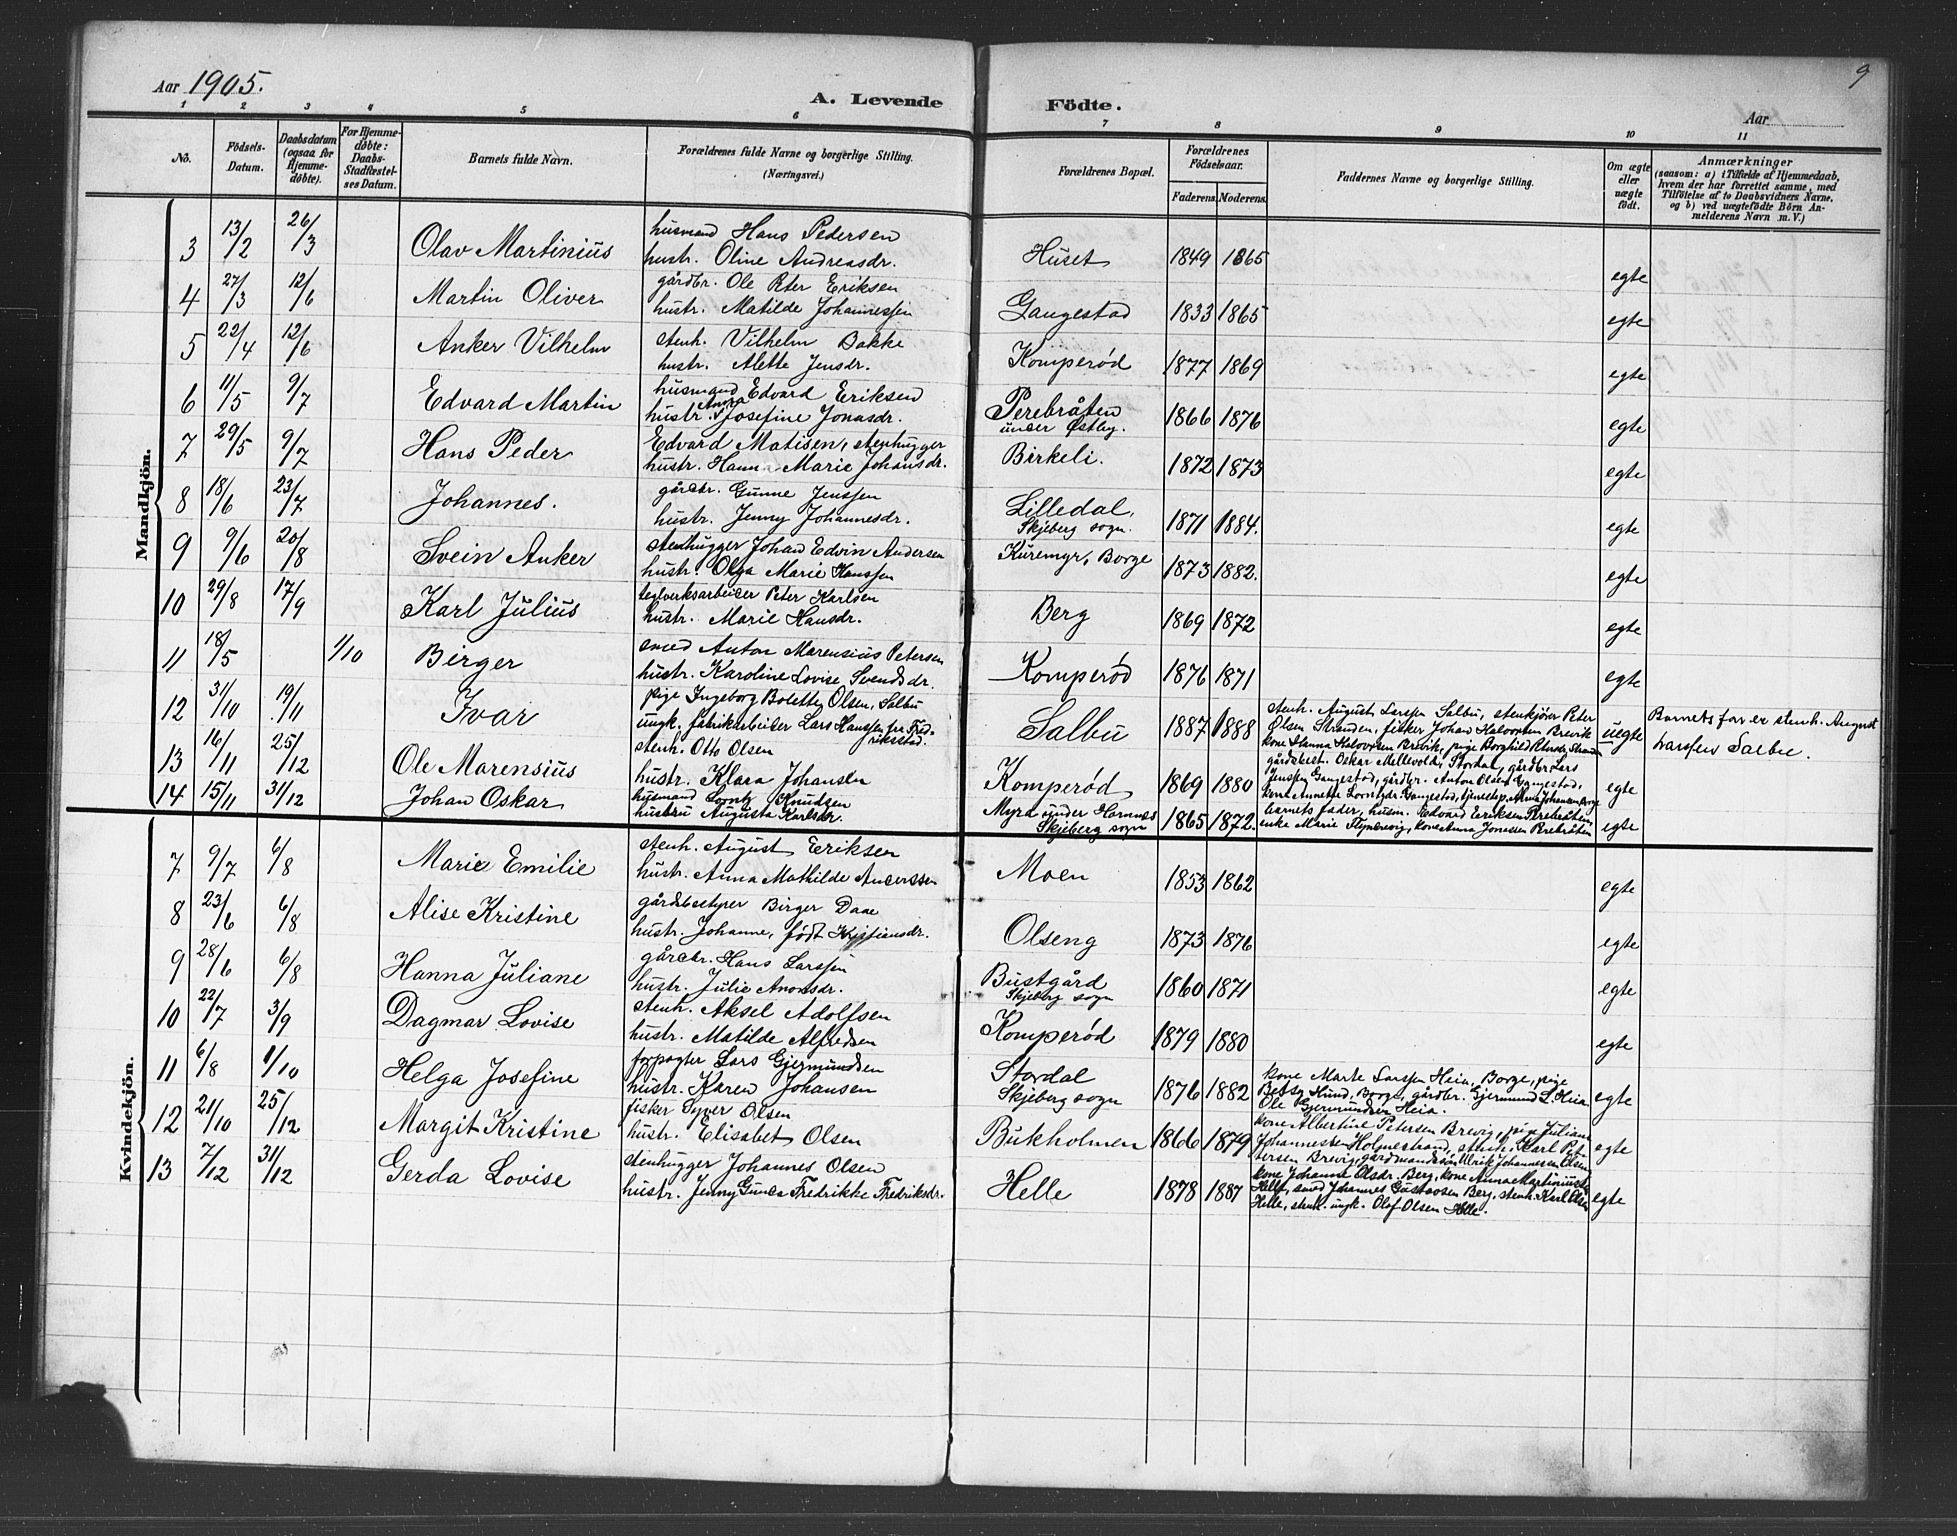 Aar 1905.
A. Levende Födte.
9
Aar
1 2 3 4 5 6 7 8 9 10 11
No.
Födsels-Datum.
Daabsdatum (ogsaa for Hjemme-døbte).
For Hjemme-døbte: Daabs-Stadfæstel-ses Datum.
Barnets fulde Navn.
Forældrenes fulde Navne og borgerlige Stilling. (Næringsvei.)
Forældrenes Bopæl.
Forældrenes Födselsaar.
Faderens. Moderens.
Faddernes Navne og borgerlige Stilling.
Om ægte eller uægte født.
Anmærkninger (saasom: a) i Tilfælde af Hjemmedaab, hvem der har forrettet samme, med Tilföielse af to Daabsvidners Navne, og b) ved uægtefödte Börn An-melderens Navn m. V.)
Mandkjön.
3 13/2 26/3 Olav Martinius husmand Hans Pedersen
hustr. Oline Andreasdr. Huset 1849 1865 egte
4 27/3 12/6 Martin Oliver gårdbr. Ole Peter Eriksen
hustr. Matilde Johannessen Gangestad 1833 1865 egte
5 22/4 12/6 Anker Vilhelm stenh. Vilhelm Bakke
hustr. Alette Jensdr. Komperød 1877 1869 egte
6 11/5 9/7 Edvard Martin husmand Edvard Eriksen
hustr. Anna Josefine Jonasdr. Perebråten under Østby. 1866 1876 egte
7 29/5 9/7 Hans Peder Edvard Matisen, stenhugger
hustr. Hanna Marie Johansdr. Birkeli. 1872 1873 egte
8 18/6 23/7 Johannes. gårdbr. Gunne Jenssen
hustr. Jenny Johannesdr. Lilledal, Skjeberg sogn. 1871 1884. egte
9 9/6 20/8 Svein Anker stenhugger Johan Edvin Andersen
hustr. Olga Marie Hanssen Kuremyr, Borge 1873 1882. egte
10 29/8 17/9 Karl Julius teglverksarbeider Peter Karlsen
hustr. Marie Hansdr. Berg 1869 1872 egte
11 18/5 1/10 Birger smed Anton Marensius Petersen
hustr. Karoline Lovise Svendsdr. Komperød 1876 1871 egte
12 31/10 19/11 Ivar pige Ingeborg Bolette Olsen, Salbu
ungk. fabrikarbeider Lars Hanssen fra Fred-
rikstad. Salbu 1887 1888
stenh. August Larssen Salbu, stenkjører Peter
Olsen Stranden, fisker Johan Halvorsen Brevik
kone Hanna Halvorsen Brevik, pige Borghild
uegte Barnets far er stenh. August
Larssen Salbu.
13 16/11 25/12 Ole Marensius stenh. Otto Olsen
hustr. Klara Johansen Komperød 1869 1880
gårdsbest. Oskar Mellevold, Stordal, gårdbr. Lars
Jenssen Gangestad, gårdbr. Anton Olsen Gangestad,
kone Annette Gangestad, tjenestep. Anna Johansen Borge
egte
14 15/11 31/12 Johan Oskar husmand Lorntz Knudsen
hustru Augusta Karlsdr. Myra under Hornnes Skjeberg sogn 1865 1872.
barnets fader, husm. Edvard Eriksen Perebråten,
enke Marie, kone Anna Jonassen Perebråten
egte
Kvindekjön.
7 9/7 6/8 Marie Emilie stenh. August Eriksen
hustr. Anna Mathilde Anderssen Moen 1853 1862 egte
8 23/6 6/8 Alise Kristine gårdsbestyrer Birger Daae
hustr. Johanne, født Kristiansdr. Olseng 1873 1876 egte
9 28/6 6/8 Hanna Juliane gårdbr. Hans Larssen
hustr. Julie Antonsdr. Bustgård Skjeberg sogn 1860 1871 egte
10 22/7 3/9 Dagmar Lovise stenh. Aksel Adolfsen
hustr. Matilde Alfredsen Komperød 1879 1880 egte
11 6/8 1/10 Helga Josefine forpagter Lars Gjermundsen
hustr. Karen Johansen Stordal Skjeberg sogn 1876 1882
kone Marte Larssen Heia, Borge, pige
Betsy Hund, Borge, gårdbr. Gjermund L. Heia
Ole Gjermundsen Heia.
egte
12 21/10 25/12 Margit Kristine fisker Syver Olsen
hustr. Elisabet Olsen Bukholmen 1866 1879
kone Albertine Petersen Brevig, pige Juliane
Johannessen Holmestrand, stenh. Karl Pe-
tersen Brevig, gårdmandssøn Ulrik Johannessen Olsen
egte
13 7/12 31/12 Gerda Lovise stenhugger Johannes Olsen
hustr. Jenny Gunda Fredrikke Fredriksdr. Helle 1878 1887
kone Johanne Olsdr. Berg, kone Anna Martinius
Helle, smed Johannes Gustavsen Berg, stenh. Karl Olsen
Helle, stenh. ungk. Olaf Olsen Helle.
egte